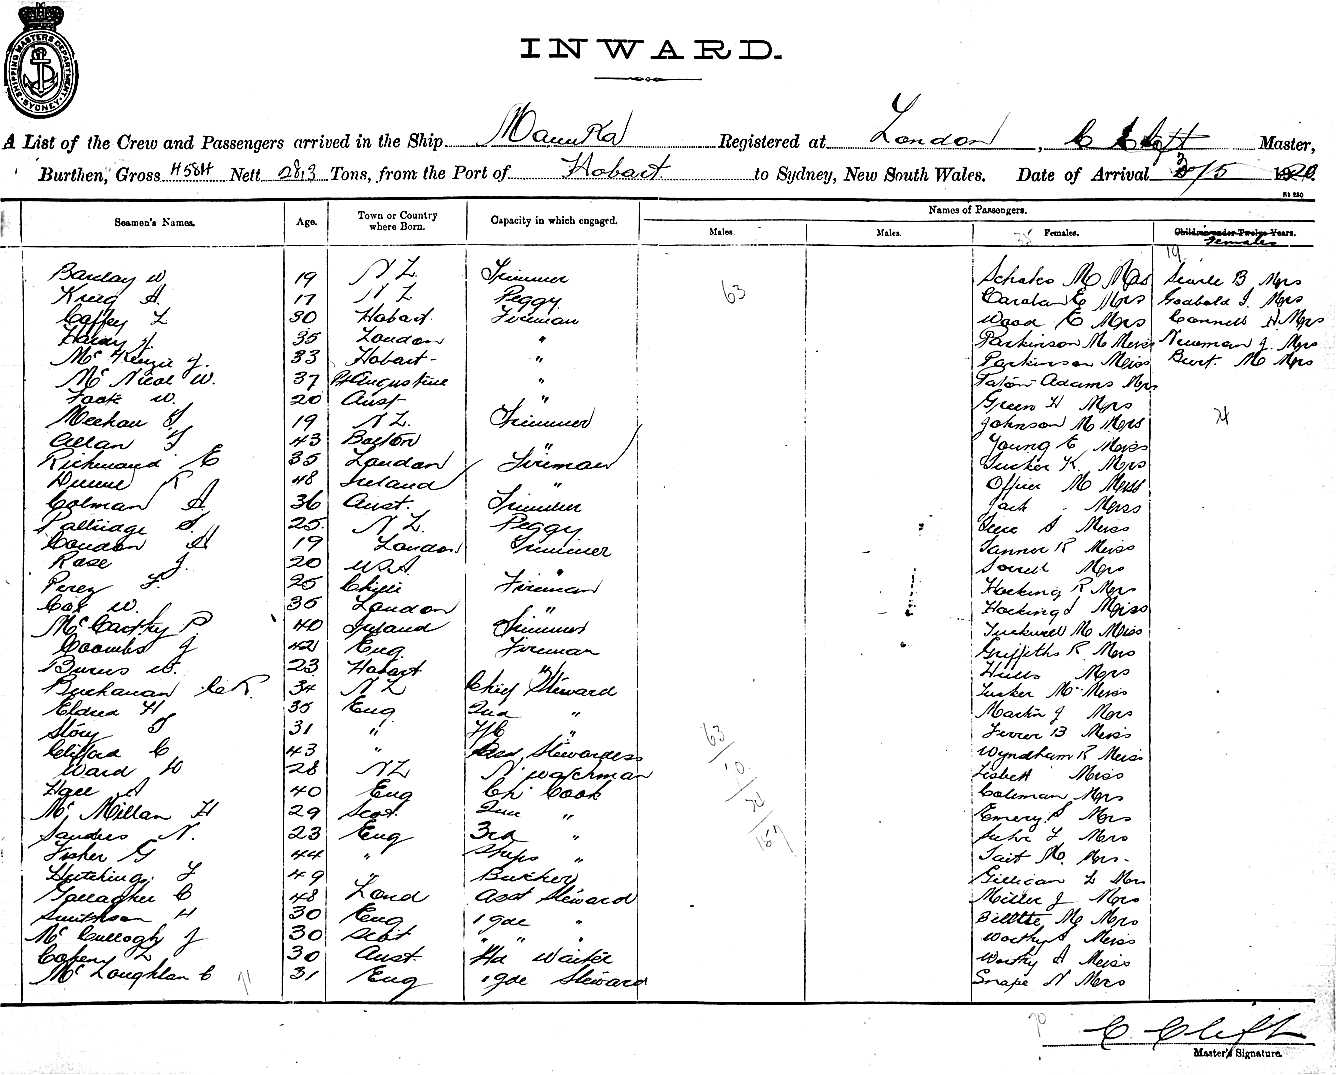 SHIPPING MASTERS DEPARTMENT SYDNEY
INWARD.
A List of the Crew and Passengers arrived in the Ship Manuka Registered at London, C Clift Master,
Burthen, Gross 4584 Nett 2813 Tons, from the Port of Hobart to Sydney, New South Wales. Date of Arrival 3/5 1920
Names of Passengers.
Seamen's Names. Age. Town or Country where Born. Capacity in which engaged. Males. Males. Females. Children under Twelve Years. Females
Barclay W 19 N Z Trimmer 63 Mrs Searle B Mrs
Krieg A. 17 N Z Peggy E Mrs Godbold J. Mrs
Caffey L 30 Hobart Fireman Wood E Mrs Connell H Mrs
Hardy J 35 London " Parkinson M Meiss Newman J Mrs
Mc Kenzie J. 33 Hobart " Parkinson Meiss Burt M Mrs
Mc Nicol W. 37 Pt Augustine " Eaton Adams Mrs
W. 20 Aust " Green H Mrs
Meehan J 19 N Z. Trimmer Johnson M Mrs
Allan T 43 Bolton " Young E Meiss
Richmond E 35 London Fireman Tucker K. Mrs
R 48 Ireland " Officer M Meiss
Colman A 36 Aust. Trimmer Jack Mrs
Pattridge S. 25 N Z. Peggy S Meiss
Condon A 19 London Trimmer Tanner R Meiss
Rose J. 20 USA " Sorrell Mrs
Perez F. 25 Chili Fireman Hocking R Mrs
Cox W. 35 London " Hocking J Meiss
Mc Carthy P. 40 Ireland Trimmer Tuckwell M Meiss
Coombs J 42 Eng. Fireman Griffiths R Mrs
Burns W. 23 Hobart " Hills Mrs
Buchanan C K. 34 N Z Chief Steward Tucker M Meiss
Eldred H 35 Eng 2nd " Martin J Mrs
Story T 31 " F/C " Ferrer B Meiss
Clifford C 43 " Asst Stewardess Wyndham R Meiss
Ward H 28 NZ N watchman Lisbett Meiss
A 40 Eng Ch. Cook Coleman Mrs
Mc Millan H 29 Scot. 2nd " Emery S Mrs
Sanders N. 23 Eng 3rd " L Mrs
Fisher G 44 " Ships " Tait M. Mrs.
Hutchings F 49 Butcher Gillican L Mrs
Gallagher C 48 Lond Asst Steward Miller J Mrs
Smithson H 30 Eng 1 gde " Billette M Mrs
Mc Cullogh J 30 Scot " " " Worthy S Meiss
L 30 Aust Hd Waiter Worthy A Meiss
Mc Loughlan C 31 Eng 1 gde Steward Snape N Mrs
C. Clift
Master's Signature.